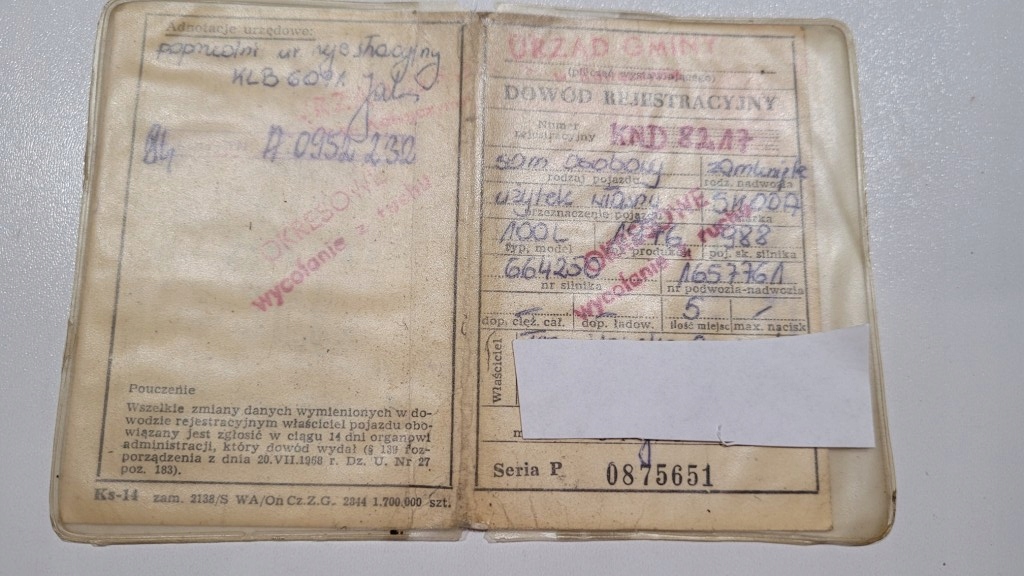 Adnotacje urzędowe:
poprzedni nr rejestracyjny
KLB 6091.
A 0952232
OKRESOWE
wycofanie z ruchu
Pouczenie
Wszelkie zmiany danych wymienionych w do-
wodzie rejestracyjnym właściciel pojazdu obo-
wiązany jest zgłosić w ciągu 14 dni organowi
administracji, który dowód wydał (§ 139 roz-
porządzenia z dnia 20.VII.1968 r. Dz. U. Nr 27
poz. 183).
Ks-14 zam. 2138/S WA/On Cz.Z.G. 2844 1.700.000 szt.
URZĄD GMINY
(pieczęć wystawiającego)
DOWÓD REJESTRACYJNY
Numer
rejestracyjny KND 8217
sam osobowy zamknięte
rodzaj pojazdu rodz. nadwozia
użytek własny SKODA
przeznaczenie pojazdu marka
100L 1976 988
typ, model rok produkcji poj. sk. silnika
664250 1657761
nr silnika nr podwozia-nadwozia
OKRESOWE
wycofanie z ruchu
— — 5 —
dop. cięż. cał. dop. ładow. ilość miejsc max. nacisk
Właściciel
Seria P 0875651